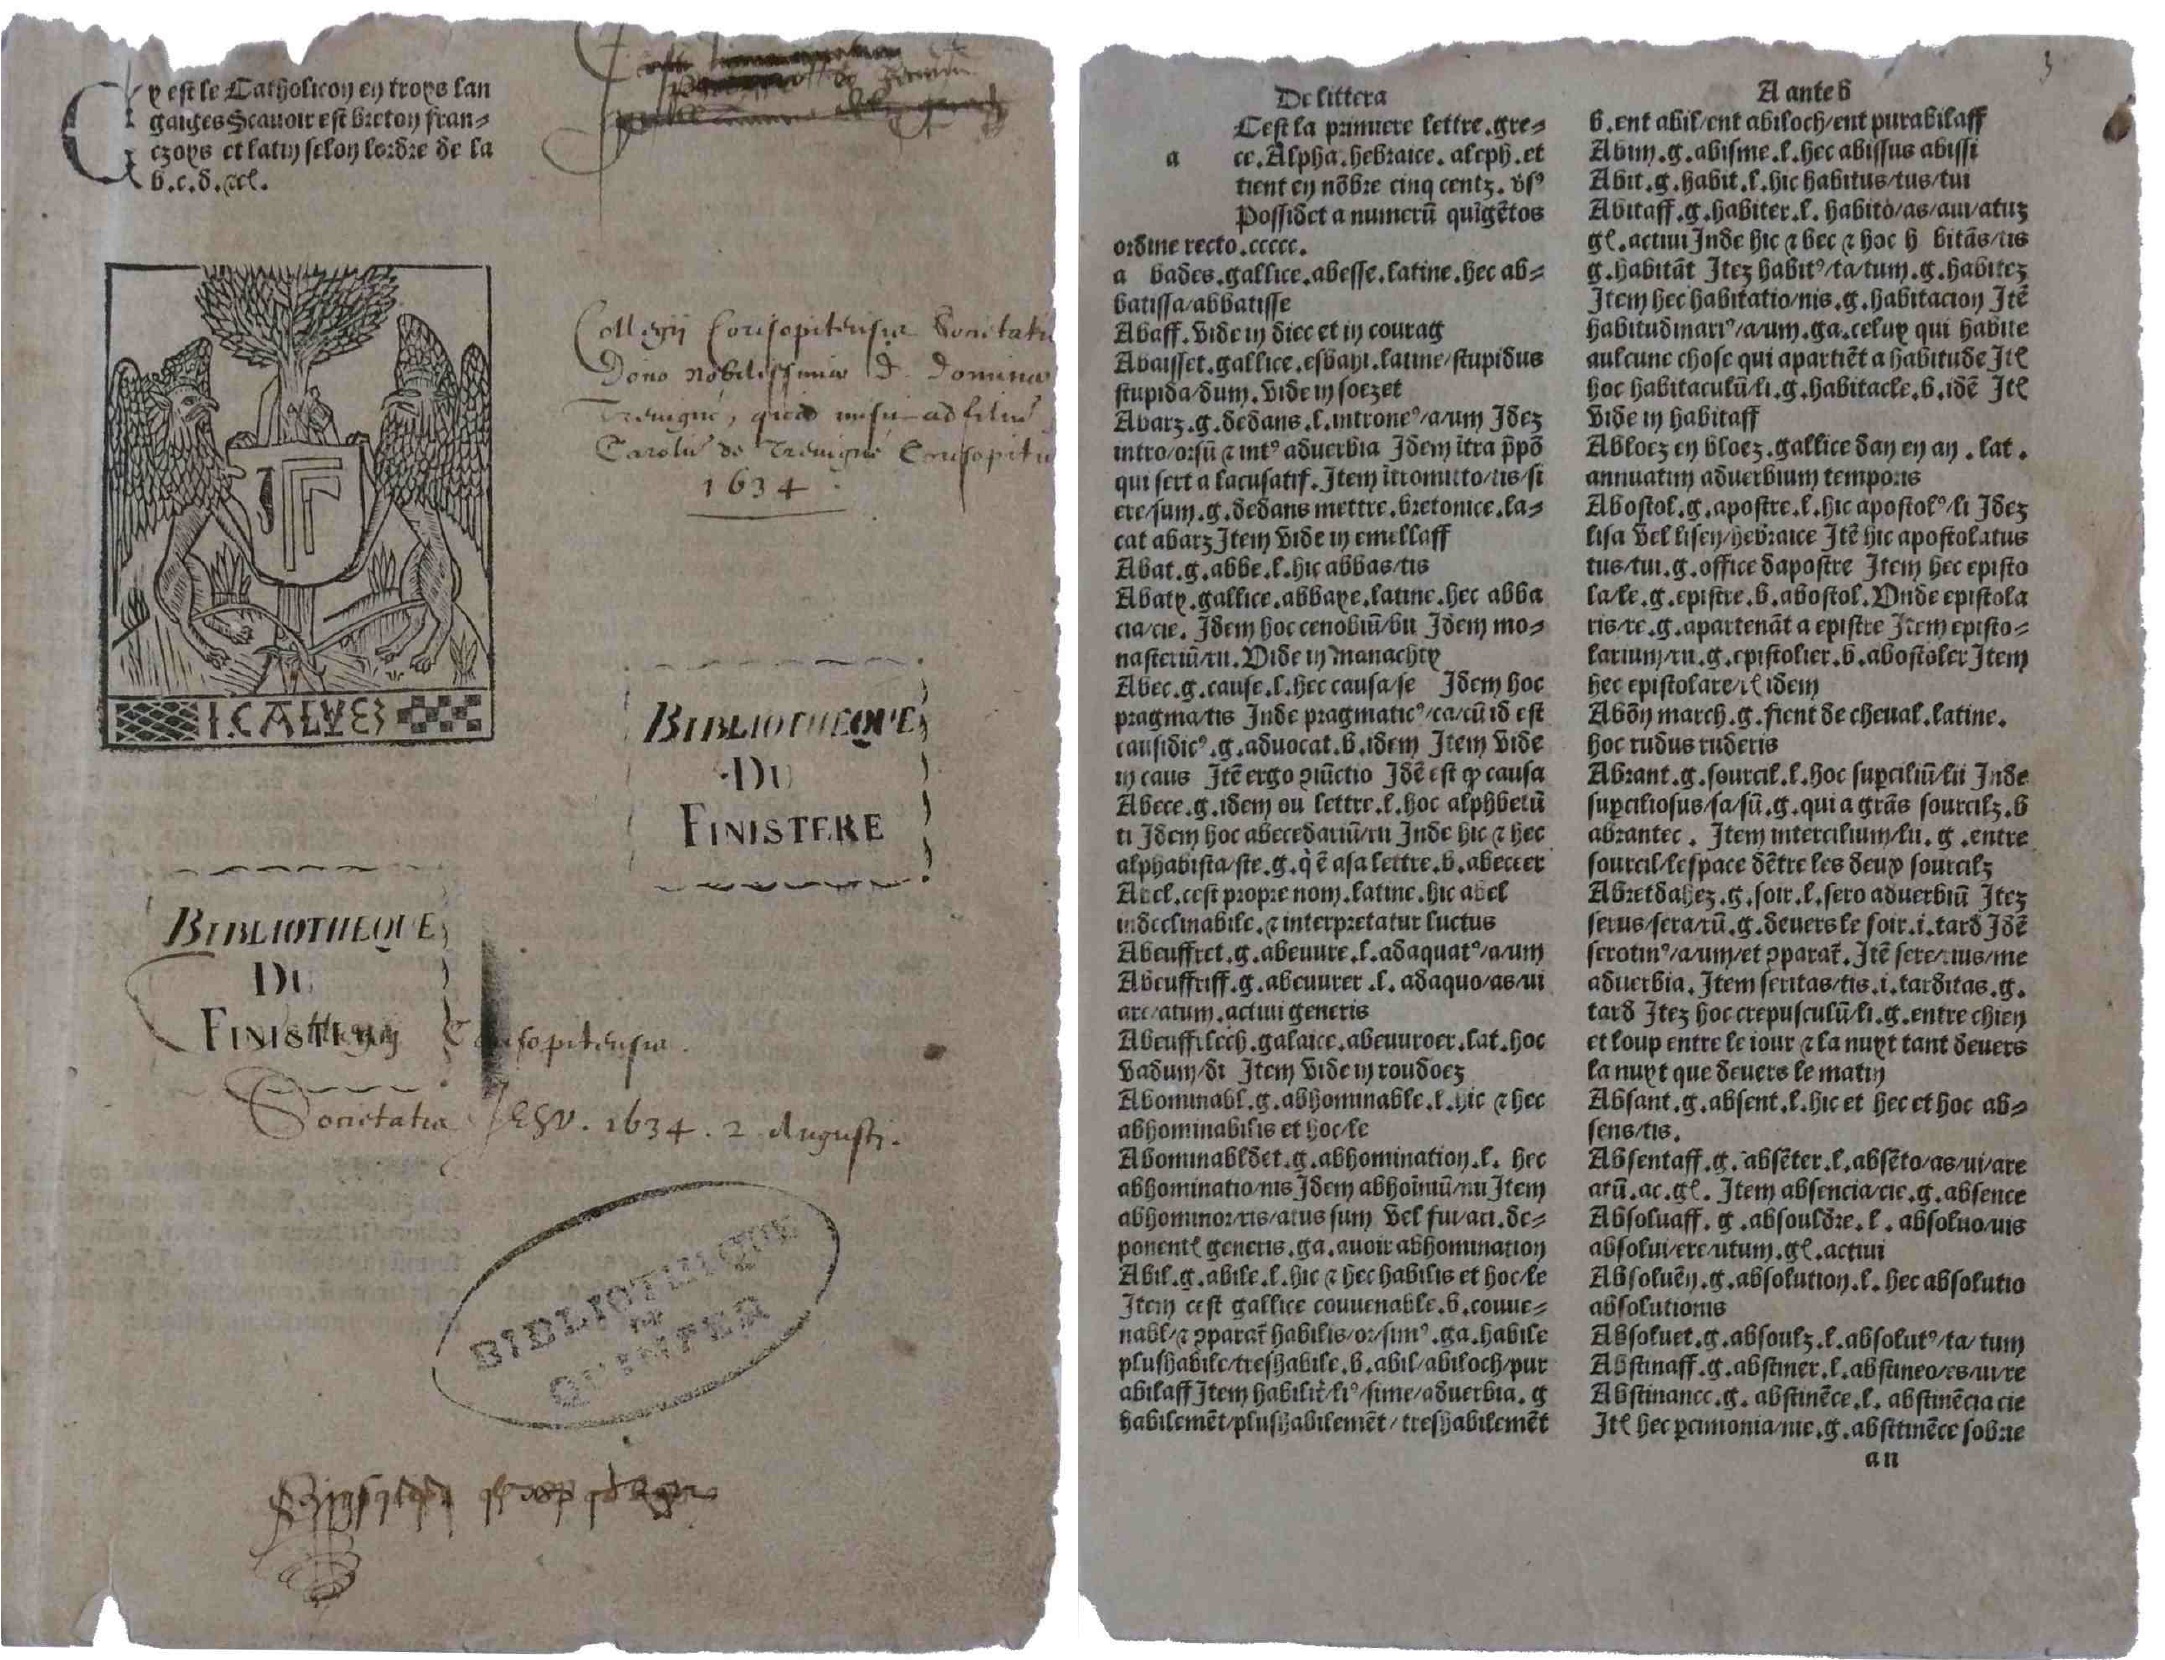 Cy est le Catholicon en troys lan
gaiges Scauoir est breton fran⸗
czoys et latin selon lordre de la
b.c.d.⁊cͤ.
Collegij Corisopitensis Societatis
Dono nobilissimæ D. Dominæ
Treuigné, misit ad filiū
Carolū de Treuigné Corisopitū
1634
I. CALVEZ
BIBLIOTHEQUE
DU
FINISTERE
BIBLIOTHEQUE
DU
FINISTERE
Collegij Corisopitensis.
Societatis JESV. 1634. 2 Augusti.
BIBLIOTHEQUE
DE
QUIMPER
3
De littera
Cest la primiere lettre.gre⸗
a ce.Alpha.hebraice.aleph.et
tient en nōbre cinq centz. vs⁹
Possidet a numerū quīgētos
ordine recto.ccccc.
a bades.gallice.abesse.latine.hec ab⸗
batissa/abbatisse
Abaff.vide in diec et in courag
Abaisset.gallice.esbahi.latine/stupidus
stupida/dum.vide in soezet
Abarz.g.dedans.l.introne⁹/a/um Idez
intro/orsū ⁊ int⁹ aduerbia Idem ītra p̄pō
qui sert a lacusatif.Item ītromitto/tis/si
ere/sum.g.dedans mettre.bretonice.la⸗
cat abarz Item vide in emellaff
Abat.g.abbe.l.hic abbas/tis
Abaty.gallice.abbaye.latine.hec abba
cia/cie. Idem hoc cenobiū/bii Idem mo⸗
nasteriū/rii.Vide in manachty
Abec.g.cause.l.hec causa/se Idem hoc
pragma/tis Inde pragmatic⁹/ca/cū id est
causidic⁹.g.aduocat.b.idem Item vide
in caus Itē ergo ꝯiūctio Idē est ꝙ causa
Abece.g.idem ou lettre.l.hoc alphbetū
ti Idem hoc abecedariū/rii Inde hic ⁊ hec
alphabista/ste.g.q̇ ē a sa lettre.b.abeceer
Abel.cest propre nom.latine.hic abel
indeclinabile.⁊ interpretatur luctus
Abeuffret.g.abeuure.l.adaquat⁹/a/um
Abeuffriff.g.abeuurer.l.adaquo/as/ui
are/atum.actiui generis
Abeuffilech.galaice.abeuuroer.lat.hoc
vadum/di Item vide in roudoez
Abominabl.g.abhominable.l.hic ⁊ hec
abhominabilis et hoc/le
Abominabldet.g.abhomination.l. hec
abhominatio/nis Idem abhoīniū/nii Item
abhominor/ris/atus sum vel fui/ari.de⸗
ponentꝭ generis.ga.auoir abhomination
Abil.g.abile.l.hic ⁊ hec habilis et hoc/le
Item cest gallice couuenable.b.couue⸗
nabl/⁊ ꝯparat̄ habilis/or/sim⁹.ga.habile
plushabile/treshabile.b.abil/abiloch/pur
abilaff Item habilit̄/li⁹/sime/aduerbia.g
habilemēt/plushabilemēt/treshabilemēt
A ante b
b.ent abil/ent abiloch/ent purabilaff
Abim.g.abisme.l.hec abissus abissi
Abit.g.habit.l.hic habitus/tus/tui
Abitaff.g.habiter.l.habito/as/aui/atuz
gꝭ.actiui Inde hic ⁊ hec ⁊ hoc h bitās/tis
g.habitāt Itez habit⁹/ta/tum.g.habitez
Item hec habitatio/nis.g.habitacion Itē
habitudinari⁹/a/um.ga.celuy qui habite
aulcune chose qui apartiēt a habitude Itꝭ
hoc habitaculū/li.g.habitacle.b.idē Itꝭ
vide in habitaff
Abloez en bloez.gallice dan en an.lat.
annuatim aduerbium temporis
Abostol.g.apostre.l.hic apostol⁹/li Idez
lisa vel lisen/hebraice Itē hic apostolatus
tus/tui.g.office dapostre Item hec episto
la/le.g.epistre.b.abostol.Vnde epistola
ris/re.g.apartenāt a epistre Item episto⸗
larium/rii.g.epistolier.b.abostoler Item
hec epistolare/rꝭ idem
Abōn march.g.fient de cheual.latine.
hoc rudus ruderis
Abrant.g.sourcil.l.hoc supciliū/lii Inde
supciliosus/sa/sū.g.qui a grās sourcilz.b
abrantec. Item intercilium/lii.g.entre
sourcil/lespace dētre les deux sourcilz
Abretdahez.g.soir.l.sero aduerbiū Itez
serus/sera/rū.g.deuers le soir.i.tard Idē
serotin⁹/a/um/et ꝯparat̄.Itē sere/rius/me
aduerbia.Item seritas/tis.i.tarditas.g.
tard Itez hoc crepusculū/li.g.entre chien
et loup entre le iour ⁊ la nuyt tant deuers
la nuyt que deuers le matin
Absant.g.absent.l.hic et hec et hoc ab⸗
sens/tis.
Absentaff.g.absēter.l.absēto/as/ui/are
atū.ac.gꝭ. Item absencia/cie.g.absence
Absoluaff.g.absouldre.l.absoluo/uis
absolui/ere/utum.gꝭ.actiui
Absoluēn.g.absolution.l.hec absolutio
absolutionis
Absoluet.g.absoulz.l.absolut⁹/ta/tum
Abstinaff.g.abstiner.l.abstineo/es/ui/re
Abstinance.g.abstinēce.l.abstinēcia cie
Itꝭ hec pcimonia/nie.g.abstinēce sobrie
a ii